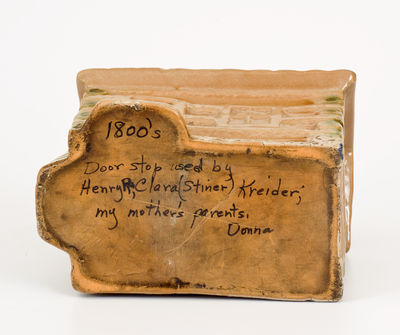 1800's
Door stop used by
Henry &, Clara (Stiner) Kreider;
my mother's parents.
Donna